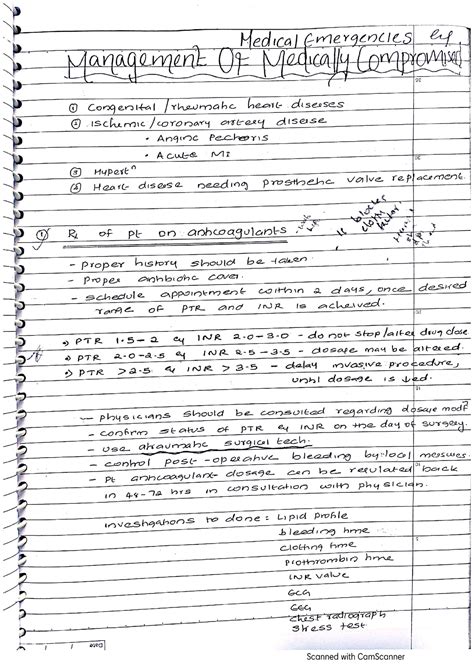 Medical Emergencies &
Management Of Medically Compromised
① Congenital / rheumatic heart diseases
② Ischemic / coronary artery disease
• Angina Pectoris
• Acute MI
③ Hypertⁿ
④ Heart disease needing prosthetic valve replacement.
① Rx of pt on anticoagulants
- proper history should be taken
- proper antibiotic cover.
- schedule appointment within 2 days, once desired
range of PTR and INR is acheived.
PTR 1.5-2 & INR 2.0-3.0 - do not stop/alter drug dose
PTR 2.0-2.5 & INR 2.5-3.5 - dosage may be altered.
PTR >2.5 & INR >3.5 - delay invasive procedure,
until dosage is ↓ed.
- physicians should be consulted regarding dosage modfⁿ
- confirm status of PTR & INR on the day of surgery.
- use atraumatic surgical tech.
- control post-operative bleeding by local measures.
- Pt anticoagulant dosage can be regulated back
in 48-72 hrs in consultation with physician.
investigations to done : Lipid profile
bleeding time
clotting time
Prothrombin time
INR value
ECG
chest radiograph
stress test
Date
Scanned with CamScanner